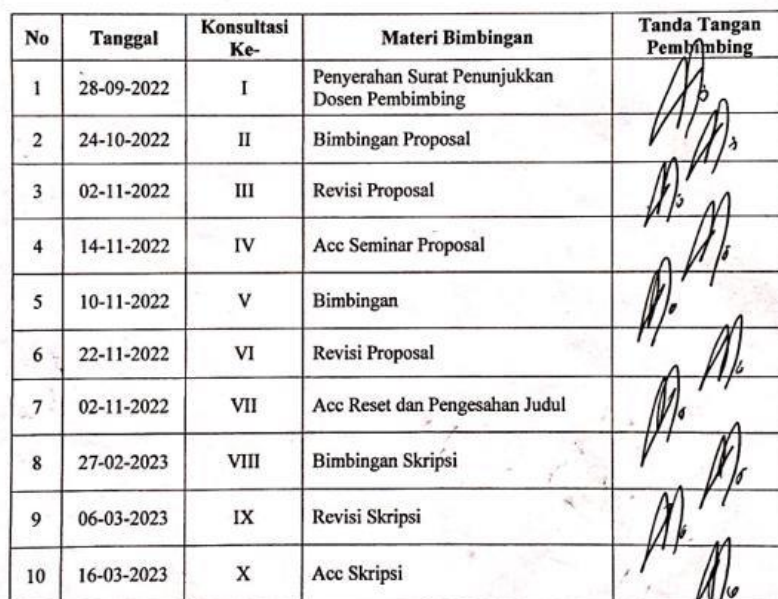 No Tanggal Konsultasi Ke- Materi Bimbingan Tanda Tangan Pembimbing
1 28-09-2022 I Penyerahan Surat Penunjukkan Dosen Pembimbing
2 24-10-2022 II Bimbingan Proposal
3 02-11-2022 III Revisi Proposal
4 14-11-2022 IV Acc Seminar Proposal
5 10-11-2022 V Bimbingan
6 22-11-2022 VI Revisi Proposal
7 02-11-2022 VII Acc Reset dan Pengesahan Judul
8 27-02-2023 VIII Bimbingan Skripsi
9 06-03-2023 IX Revisi Skripsi
10 16-03-2023 X Acc Skripsi